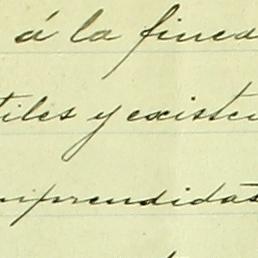 á la finca
tiles y existen
mprendidas